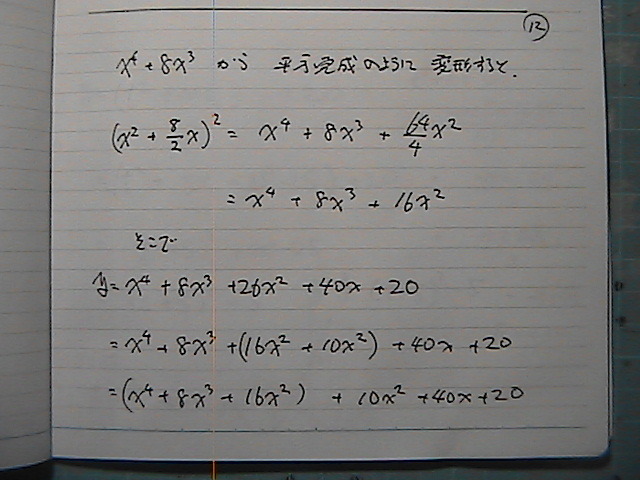 ⑫
x⁴ + 8x³ から 平方完成のように 変形すると、
(x² + 8/2 x)² = x⁴ + 8x³ + 64/4 x²
= x⁴ + 8x³ + 16x²
ここで
y = x⁴ + 8x³ + 26x² + 40x + 20
= x⁴ + 8x³ + (16x² + 10x²) + 40x + 20
= (x⁴ + 8x³ + 16x²) + 10x² + 40x + 20